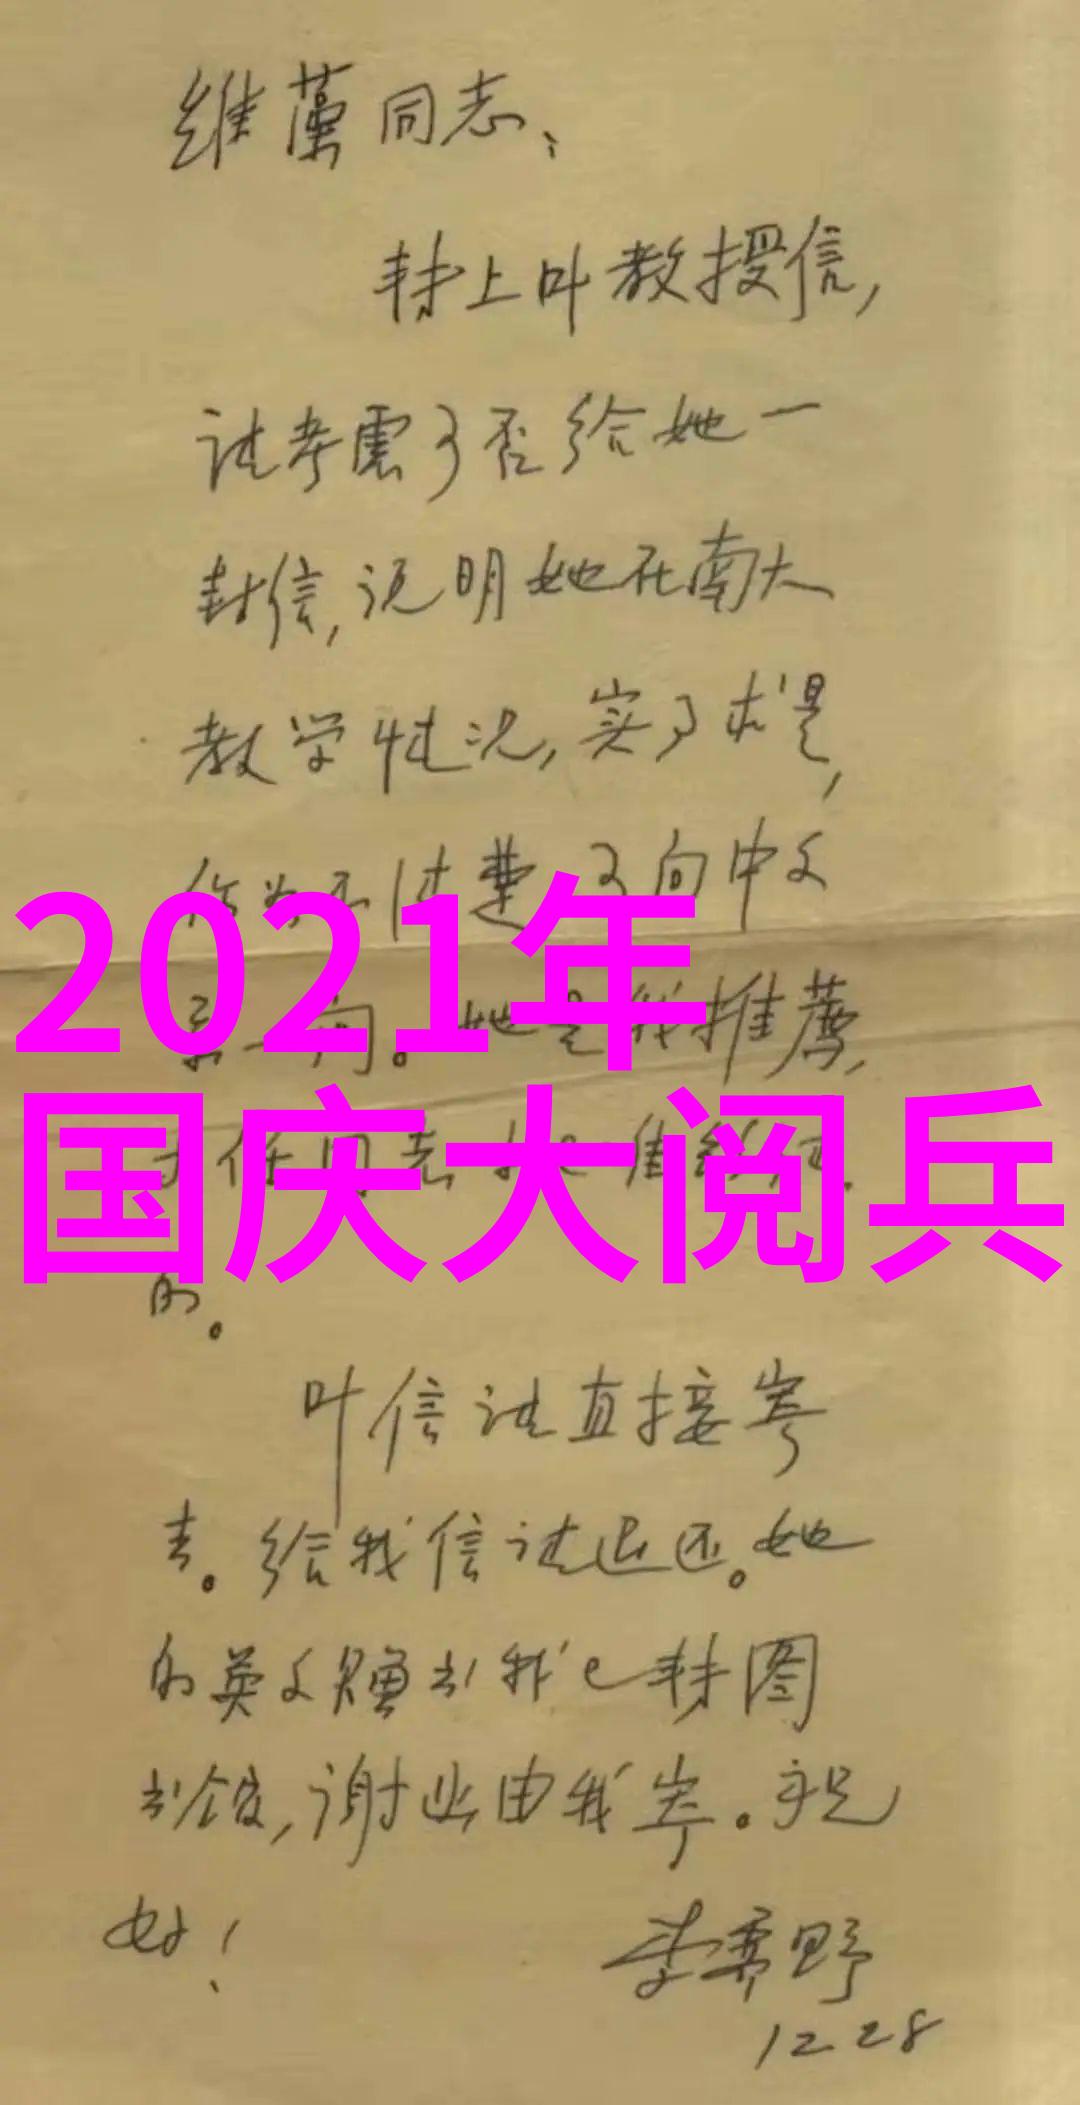 维藻同志：
转上叶教授信，
请考虑可否给她一
封信，说明她在南大
教学情况，实事求是，
作为不清楚，可向中文
2021年
系一问。她是我推荐，
国庆大阅兵
的。
叶信请直接寄
去。给我信请退还。她
的英文赠书我已转图
书馆，谢此由我寄。祝
好！
李霁野
12 28